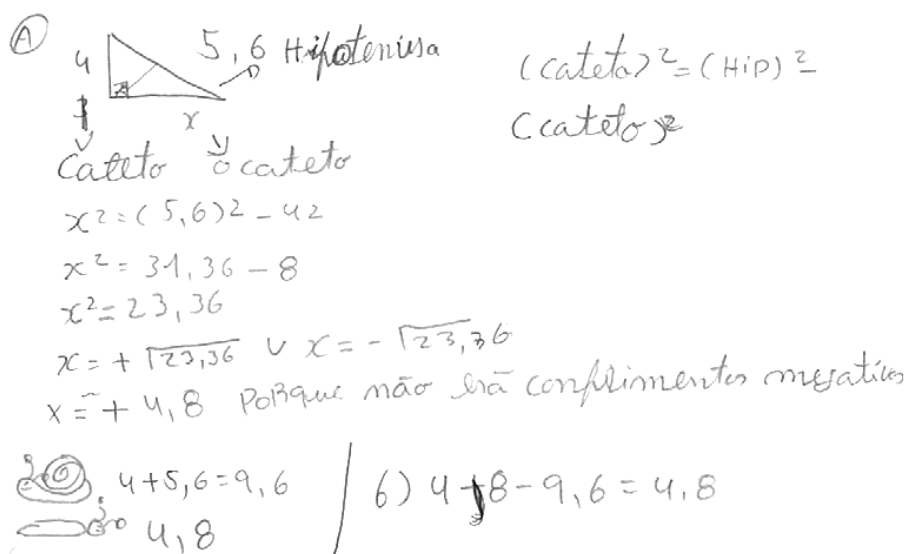 A
4 5,6 Hipotenusa
x
Cateto o cateto
(cateto)² = (HiP)² -
(cateto)²
x² = (5,6)2 - 42
x² = 31,36 - 8
x² = 23,36
x = + √23,36 v x = - √23,36
x = + 4,8 PoRque não há comprimentos negativos
4+5,6=9,6
4,8
6) 4+8-9,6=4,8